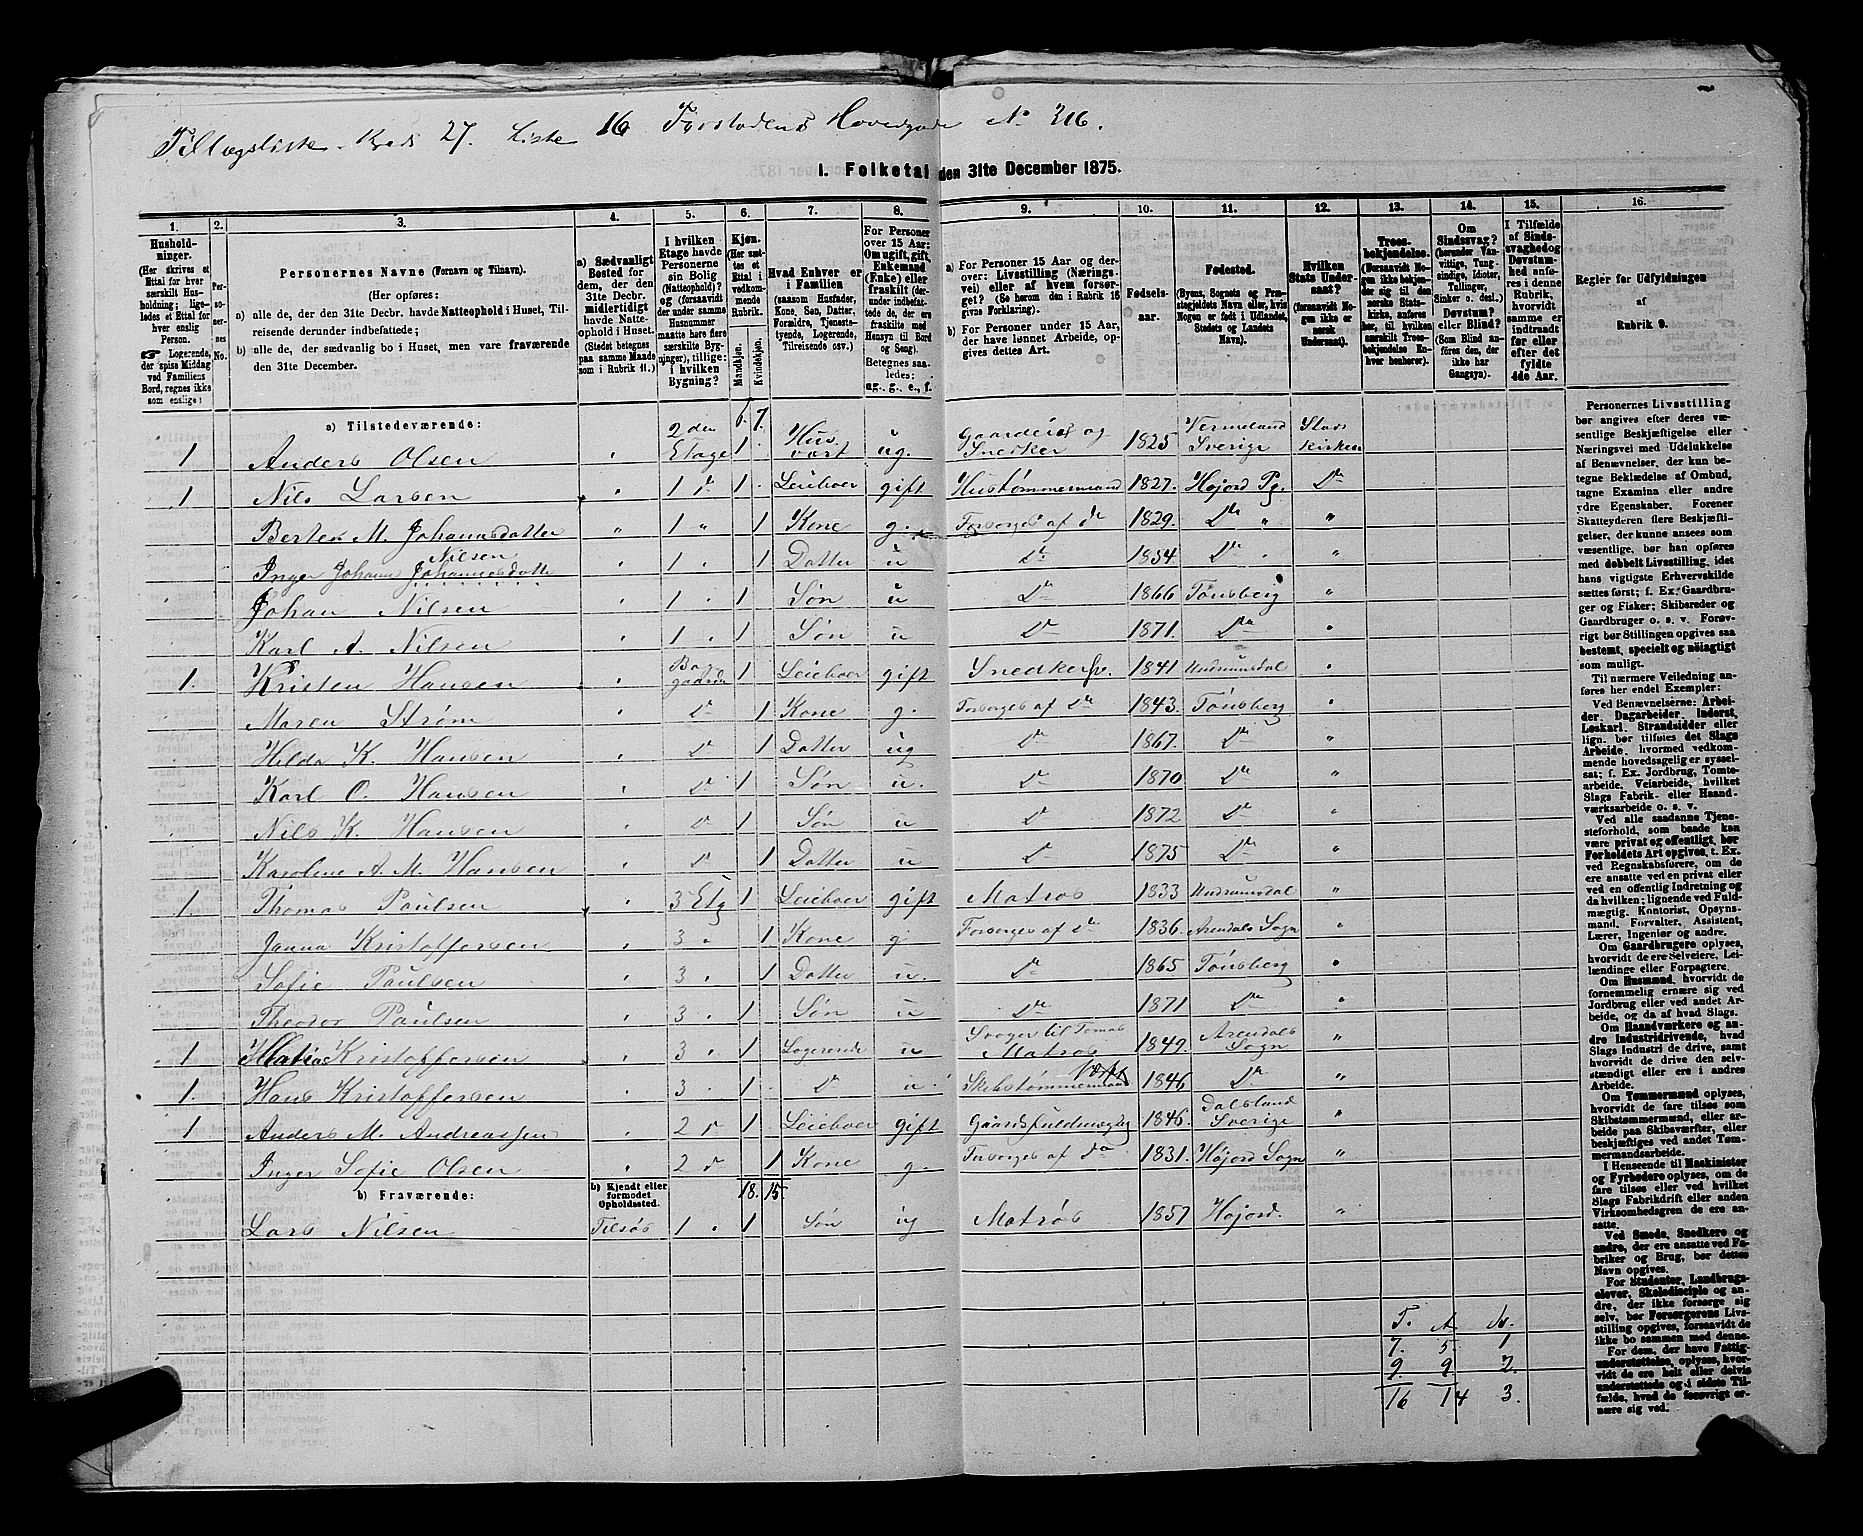 Tillægsliste Kreds 27. Liste 16 Forstadens Hovedgade No 316.
1. Folketal den 31te December 1875.
1. 2. 3. 4. 5. 6. 7. 8. 9. 10. 11. 12. 13. 14. 15. 16.
Husholdninger. (Her skrives et Ettal for hver særskilt Husholdning; ligeledes et Ettal for hver enslig Person. ☞ Logerende, der spise Middag ved Familiens Bord, regnes ikke som enslige;
Personernes No.
Personernes Navne (Fornavn og Tilnavn).
(Her opføres:
a) alle de, der den 31te Decbr. havde Natteophold i Huset, Tilreisende derunder indbefattede;
b) alle de, der sædvanlig bo i Huset, men vare fraværende den 31te December.
a) Sædvanligt Bosted for dem, der den 31te Decbr. havde midlertidigt Natteophold i Huset. (Stedet betegnes paa samme Maade som i Rubrik 11.)
I hvilken Etage havde Personerne sin Bolig (Natteophold)? og (forsaavidt der under samme Husnummer maatte høre flere særskilte Bygninger), tillige: i hvilken Bygning?
Kjøn. (Her sættes et Ettal i vedkommende Rubrik. Mandkjøn. Kvindekjøn.
Hvad Enhver er i Familien (saasom Husfader, Kone, Søn, Datter, Forældre, Tjenestetyende, Logerende, Tilreisende osv.)
For Personer over 15 Aar: Om ugift, gift, Enkemand (Enke) eller fraskilt (derunder indbefattede de, der ere fraskilte med Hensyn til Bord og Seng). Betegnes saaledes: ug., g., e., f.
a) For Personer 15 Aar og derover: Livsstilling (Næringsvei) eller af hvem forsørget? (Se herom den i Rubrik 16 givne Forklaring).
b) For Personer under 15 Aar, der have lønnet Arbeide, opgives dettes Art.
Fødselsaar.
Fødested. (Byens, Sognets og Præstegjeldets Navn eller, hvis Nogen er født i Udlandet, Stedets og Landets Navn).
Hvilken Stats Undersaat? (forsaavidt Nogen ikke er norsk Undersaat).
Troesbekjendelse. (Forsaavidt Nogen ikke bekjender sig til den norske Statskirke, anføres her, til hvilken særskilt Troesbekjendelse Enhver henhører).
Om Sindssvag? (herunder Vanvittige, Tungsindige, Idioter, Tullinger, Sinker o. desl.) Døvstum? eller Blind? (Som Blind anføres den, der ikke har Gangsyn).
I Tilfælde af Sindssvaghed og Døvstumhed anføres i denne Rubrik, hvorvidt samme er indtraadt før eller efter det fyldte 4de Aar.
Regler for Udfyldningen af Rubrik 9.
a) Tilstedeværende:
1 Anders Olsen 2den Etage 1 Husvært ug. Gaardeier og Snedker 1825 Vermeland Sverige Stats kirken
1 Nils Larsen 1 Do 1 Leieboer gift Hustømmermand 1827. Højord Pg. Do
Berte M. Johannsdatter 1 " 1 Kone g. Forsørges af do 1829. Do "
Inger Johann Johannesdatter Nilsen 1 1 Datter u Do 1854 Do "
Johan Nilsen 1 1 Søn u Do 1866 Tønsberg "
Karl A. Nilsen 1 1 Søn u Do 1871. Do "
1. Kristen Hansen Baggaarden 1 Leieboer gift Snedkersv. 1841
Maren Strøm Do 1 Kone g. Forsørges af Do 1843. Tønsberg "
Hilda K. Hansen Do 1 Datter ug Do 1867. Do "
Karl O. Hansen Do 1 Søn u. Do 1870 Do "
Nils K. Hansen Do 1 Søn u Do 1872 Do "
Karoline A. M. Hansen Do 1 Datter u Do 1875 Do "
1. Thomas Paulsen 3 Etg 1 Leieboer gift Matros 1833 "
Janna Kristoffersen 3 1 Kone g. Forsørges af Do 1836. Arendals Sogn "
Sofie Paulsen 3 1 Datter u. Do 1865 Tønsberg "
Theodor Paulsen 3 1 Søn u Do 1871 Do "
1 Matias Kristoffersen 3 1 Logerende u Svoger til Tomas Matros 1849. Arendals Sogn "
1. Hans Kristoffersen 3 1 Do u. Skibstømmermand Værft 1846 Do "
1 Anders M. Andreassen 2 Do 1 Leieboer gift Gaardsfuldmægtig 1846. Dalsland Sverige "
Inger Sofie Olsen 2 Do 1 Kone g. Forsørges af do 1831. Højord Sogn "
b) Fraværende: b) Kjendt eller formodet Opholdssted. 18. 15
Lars Nilsen Tilsøs 1 1 Søn ug Matros 1857 Højord. "
T. A N.
7. 5 1
9. 9 2.
16 14 3.
Personernes Livsstilling bør angives efter deres væsentlige Beskjæftigelse eller Næringsvei med Udelukkelse af Benævnelser, der kun betegne Beklædelse af Ombud, tagne Examina eller andre ydre Egenskaber. Forener Skatteyderen flere Beskjæftigelser, der kunne ansees som væsentlige, bør han opføres med dobbelt Livsstilling, idet hans vigtigste Erhvervskilde sættes først; f. Ex. Gaardbruger og Fisker; Skibsreder og Gaardbruger o. s. v. Forøvrigt bør Stillingen opgives saa bestemt, specielt og nøiagtigt som muligt.
Til nærmere Veiledning anføres her endel Exempler:
Ved Benævnelserne: Arbeider, Dagarbeider, Inderst, Løskarl, Strandsidder eller lign. bør tilføtes det Slags Arbeide, hvormed vedkommende hovedsagelig er sysselsat; f. Ex. Jordbrug, Tomtearbeide, Veiarbeide, hvilket Slags Fabrik- eller Haandværksarbeide o. s. v.
Ved alle saadanne Tjenesteforhold, som baade kan være privat og offentligt, bør Forholdets Art opgives, t. Ex. ved Regnskabsførere, om de ere ansatte ved en privat eller ved en offentlig Indretning og da hvilken; lignende ved Fuldmægtig, Kontorist, Opsynsmand, Forvalter, Assistent, Lærer, Ingeniør og andre.
Om Gaardbrugere oplyses, hvorvidt de ere Selveiere, Leilændinge eller Forpagtere.
Om Husmænd, hvorvidt de fornemmelig ernære sig ved Jordbrug eller ved andet Arbeide, og da af hvad Slags.
Om Haandværkere og andre Industridrivende, hvad Slags Industri de drive, samt hvorvidt de drive den selvstændigt eller ere i andres Arbeide.
Om Tømmermænd oplyses, hvorvidt de fare tilsøs som Skibstømmermænd, eller arbeide paa Skibsværfter, eller beskjæftiges ved andet Tømmermandsarbeide.
I Henseende til Maskinister og Fyrbødere oplyses, om de fare tilsøs eller ved hvilket Slags Fabrikdrift eller anden Virksomhedsgren de ere ansatte.
Ved Smede, Snedkere og andre, der ere ansatte ved Fabriker og Brug, bør dettes Navn opgives.
For Studenter, Landbrugselever, Skoledisciple og andre, der ikke forsørge sig selv, bør Forsørgerens Livsstilling opgives, forsaavidt de ikke bo sammen med denne.
For dem, der have Fattigunderstøttelse, oplyses, hvorvidt de ere helt eller delvis understøttede og i sidste Tilfælde, hvad de forøvrigt ernære sig ved.